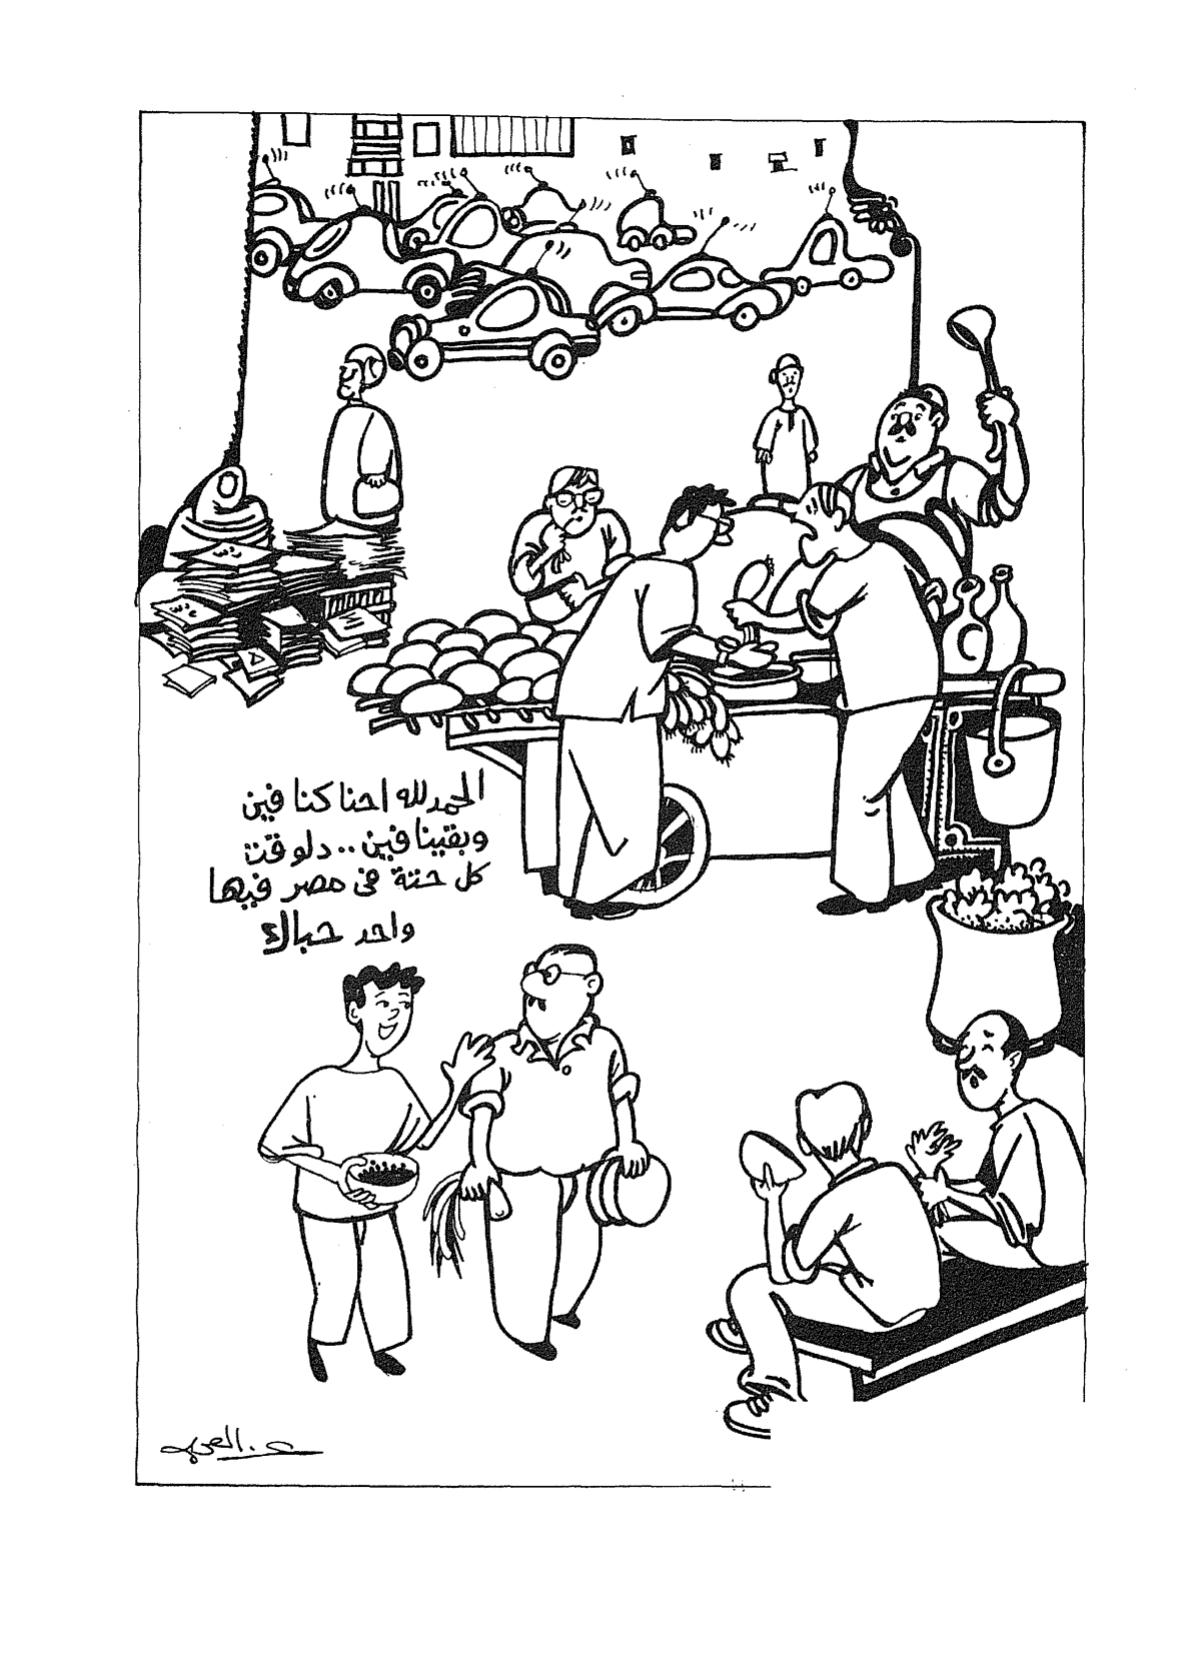 الحمدلله احنا كنا فين
وبقينا فين .. دلوقت
كل حتة فى مصر فيها
واحد حباك